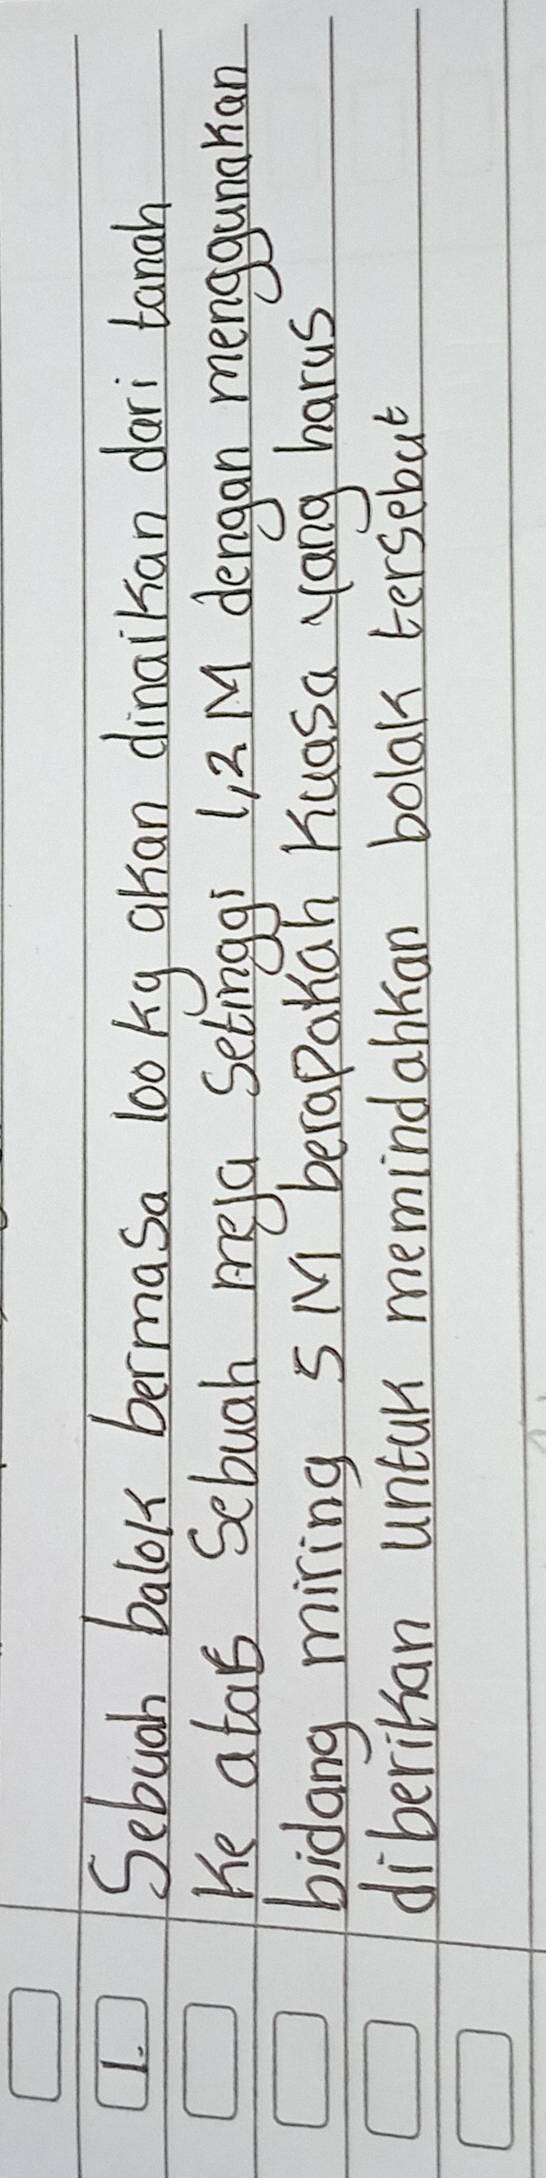 1. Sebuah balok bermasa 100 kg akan dinaikan dari tanah
ke atas sebuah meja setinggi 1,2 M dengan menggunakan
bidang miring 5 M berapakah kuasa yang harus
diberikan untuk memindahkan bolak tersebut